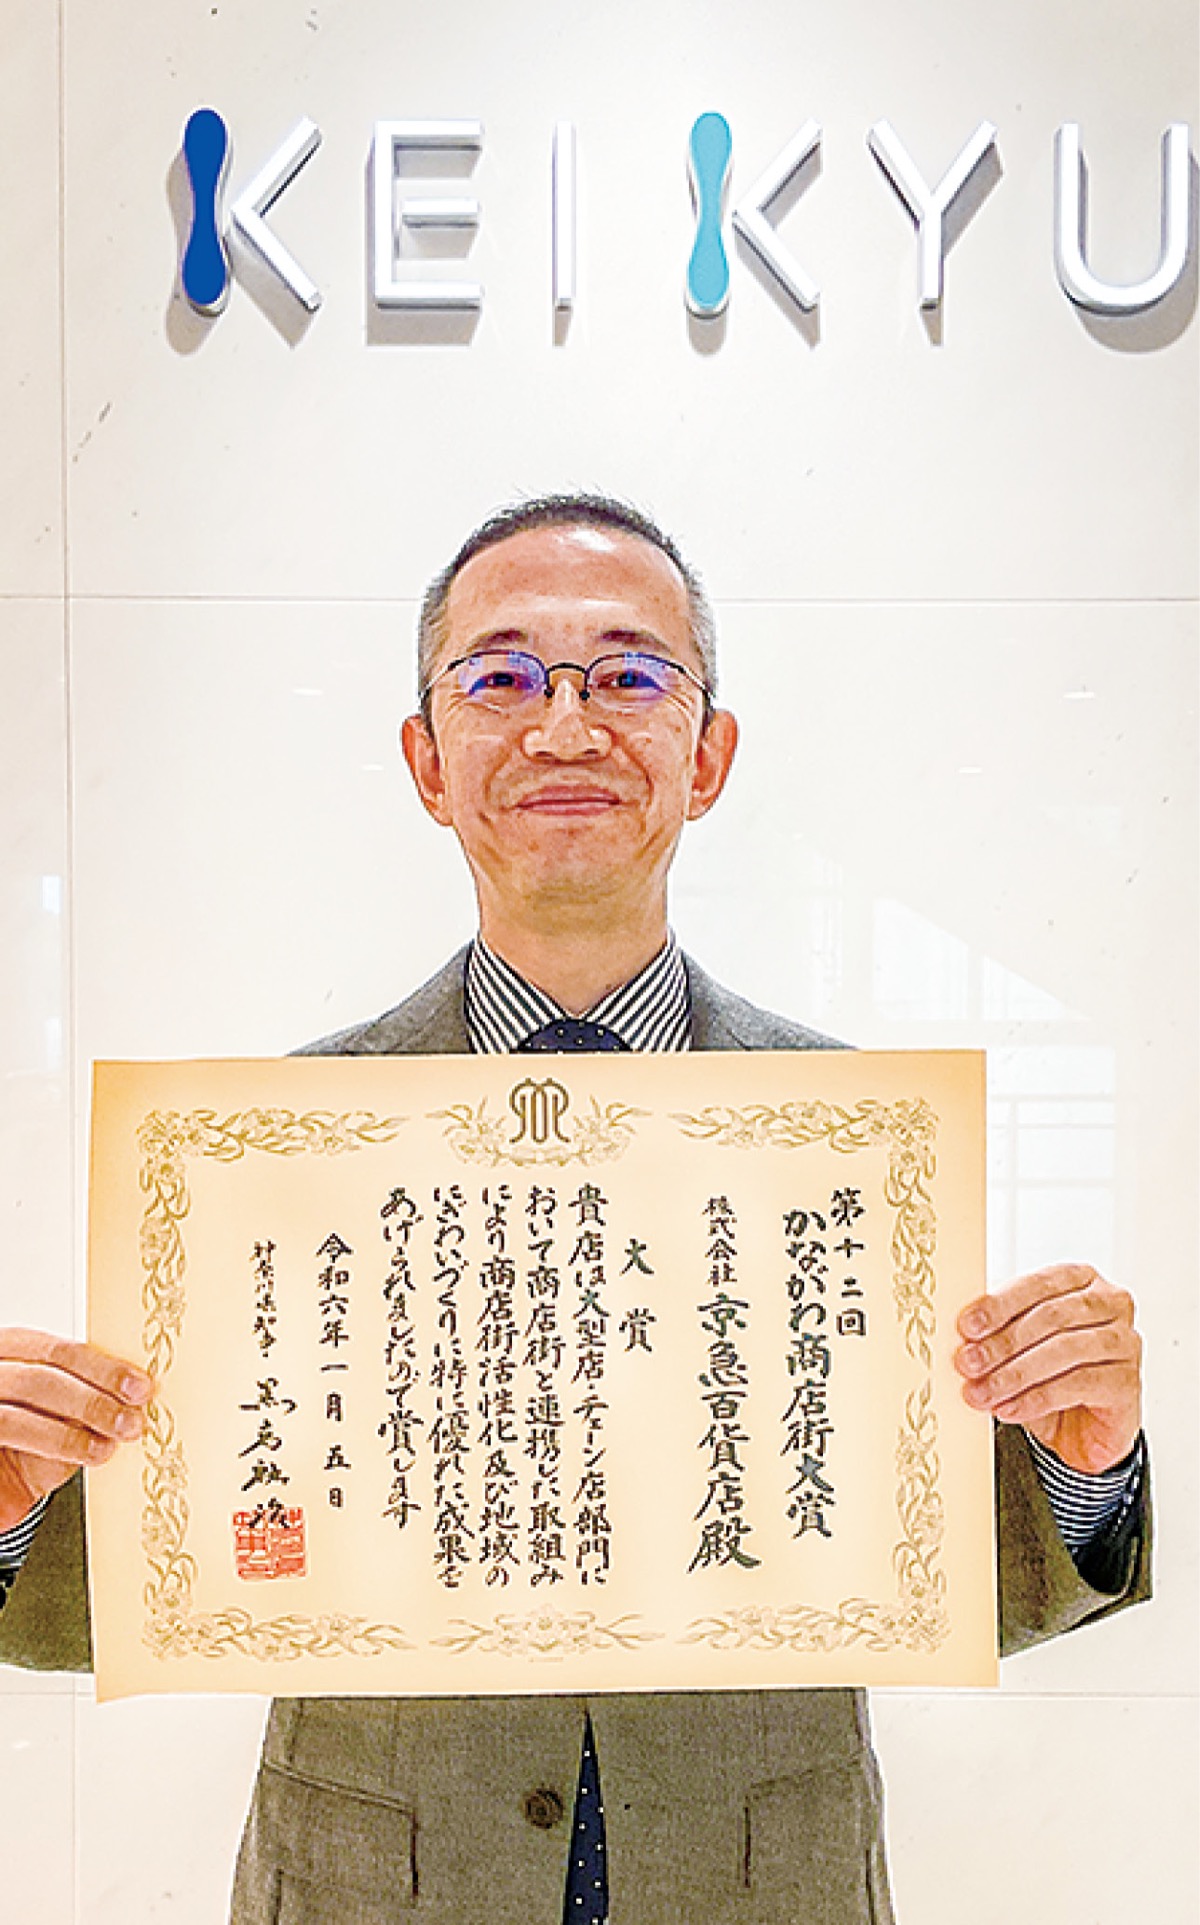 KEIKYU
第十二回
かながわ商店街大賞
株式会社 京急百貨店殿
大賞
貴店は大型店・チェーン店部門に
おいて商店街と連携した取組み
により商店街活性化及び地域の
にぎわいづくりに特に優れた成果を
あげられましたので賞します
令和六年一月五日
神奈川県知事 黒岩祐治